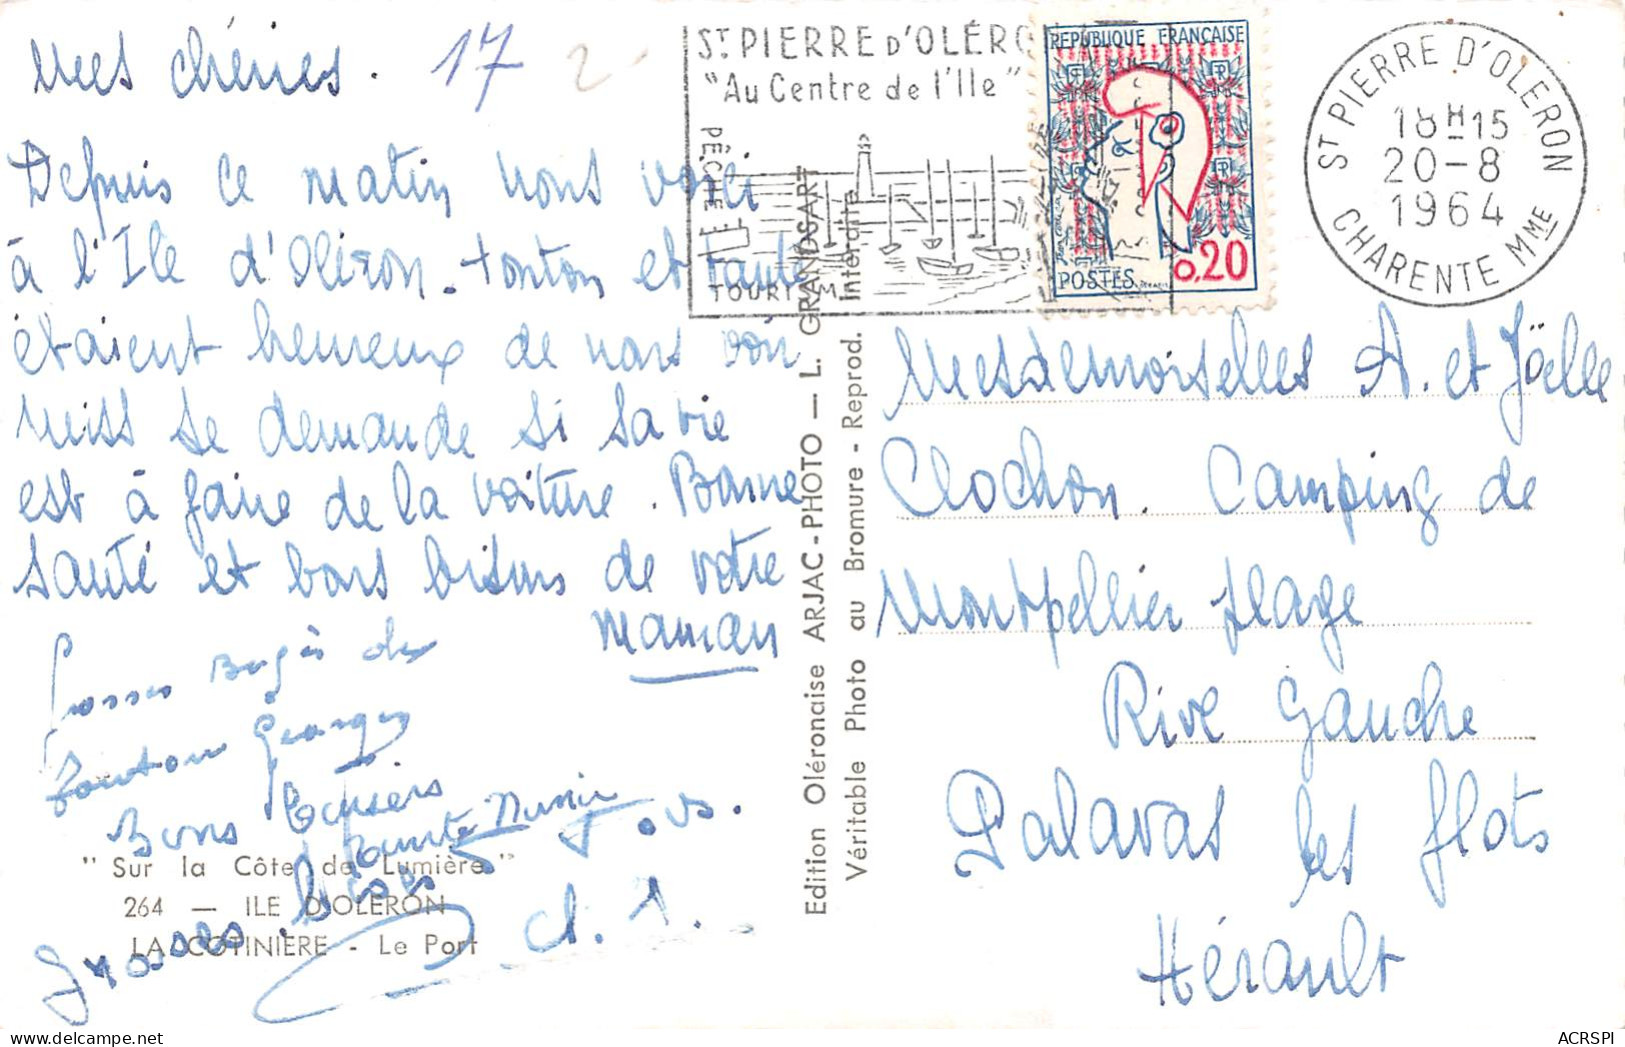 Mes chéries. 17
2
Depuis ce matin nous voici
à l'Ile d'Oléron. tonton et tante
étaient heureux de nous voir
Miss se demande si sa vie
est à faire de la voiture. Bonne
santé et bons bisous de votre
maman
Grosses Bises de
Tonton Georges
Bons baisers
Tante
Grosses bises
" Sur la Côte de Lumière "
264 — ILE D'OLERON
LA COTINIÈRE - Le Port
Edition Oléronaise ARJAC-PHOTO — L. GRANDSART
Véritable Photo au Bromure - Reprod. Interdite
ST PIERRE D'OLÉRO
"Au Centre de l'Ile"
PÊCHE
TOURISM
REPUBLIQUE FRANÇAISE
POSTES
0,20
ST PIERRE D'OLERON
18H15
20-8
1964
CHARENTE MME
Mesdemoiselles A. et Joëlle
Clochon. Camping de
Montpellier plage
Rive Gauche
Palavas les flots
Hérault
ACRSPI